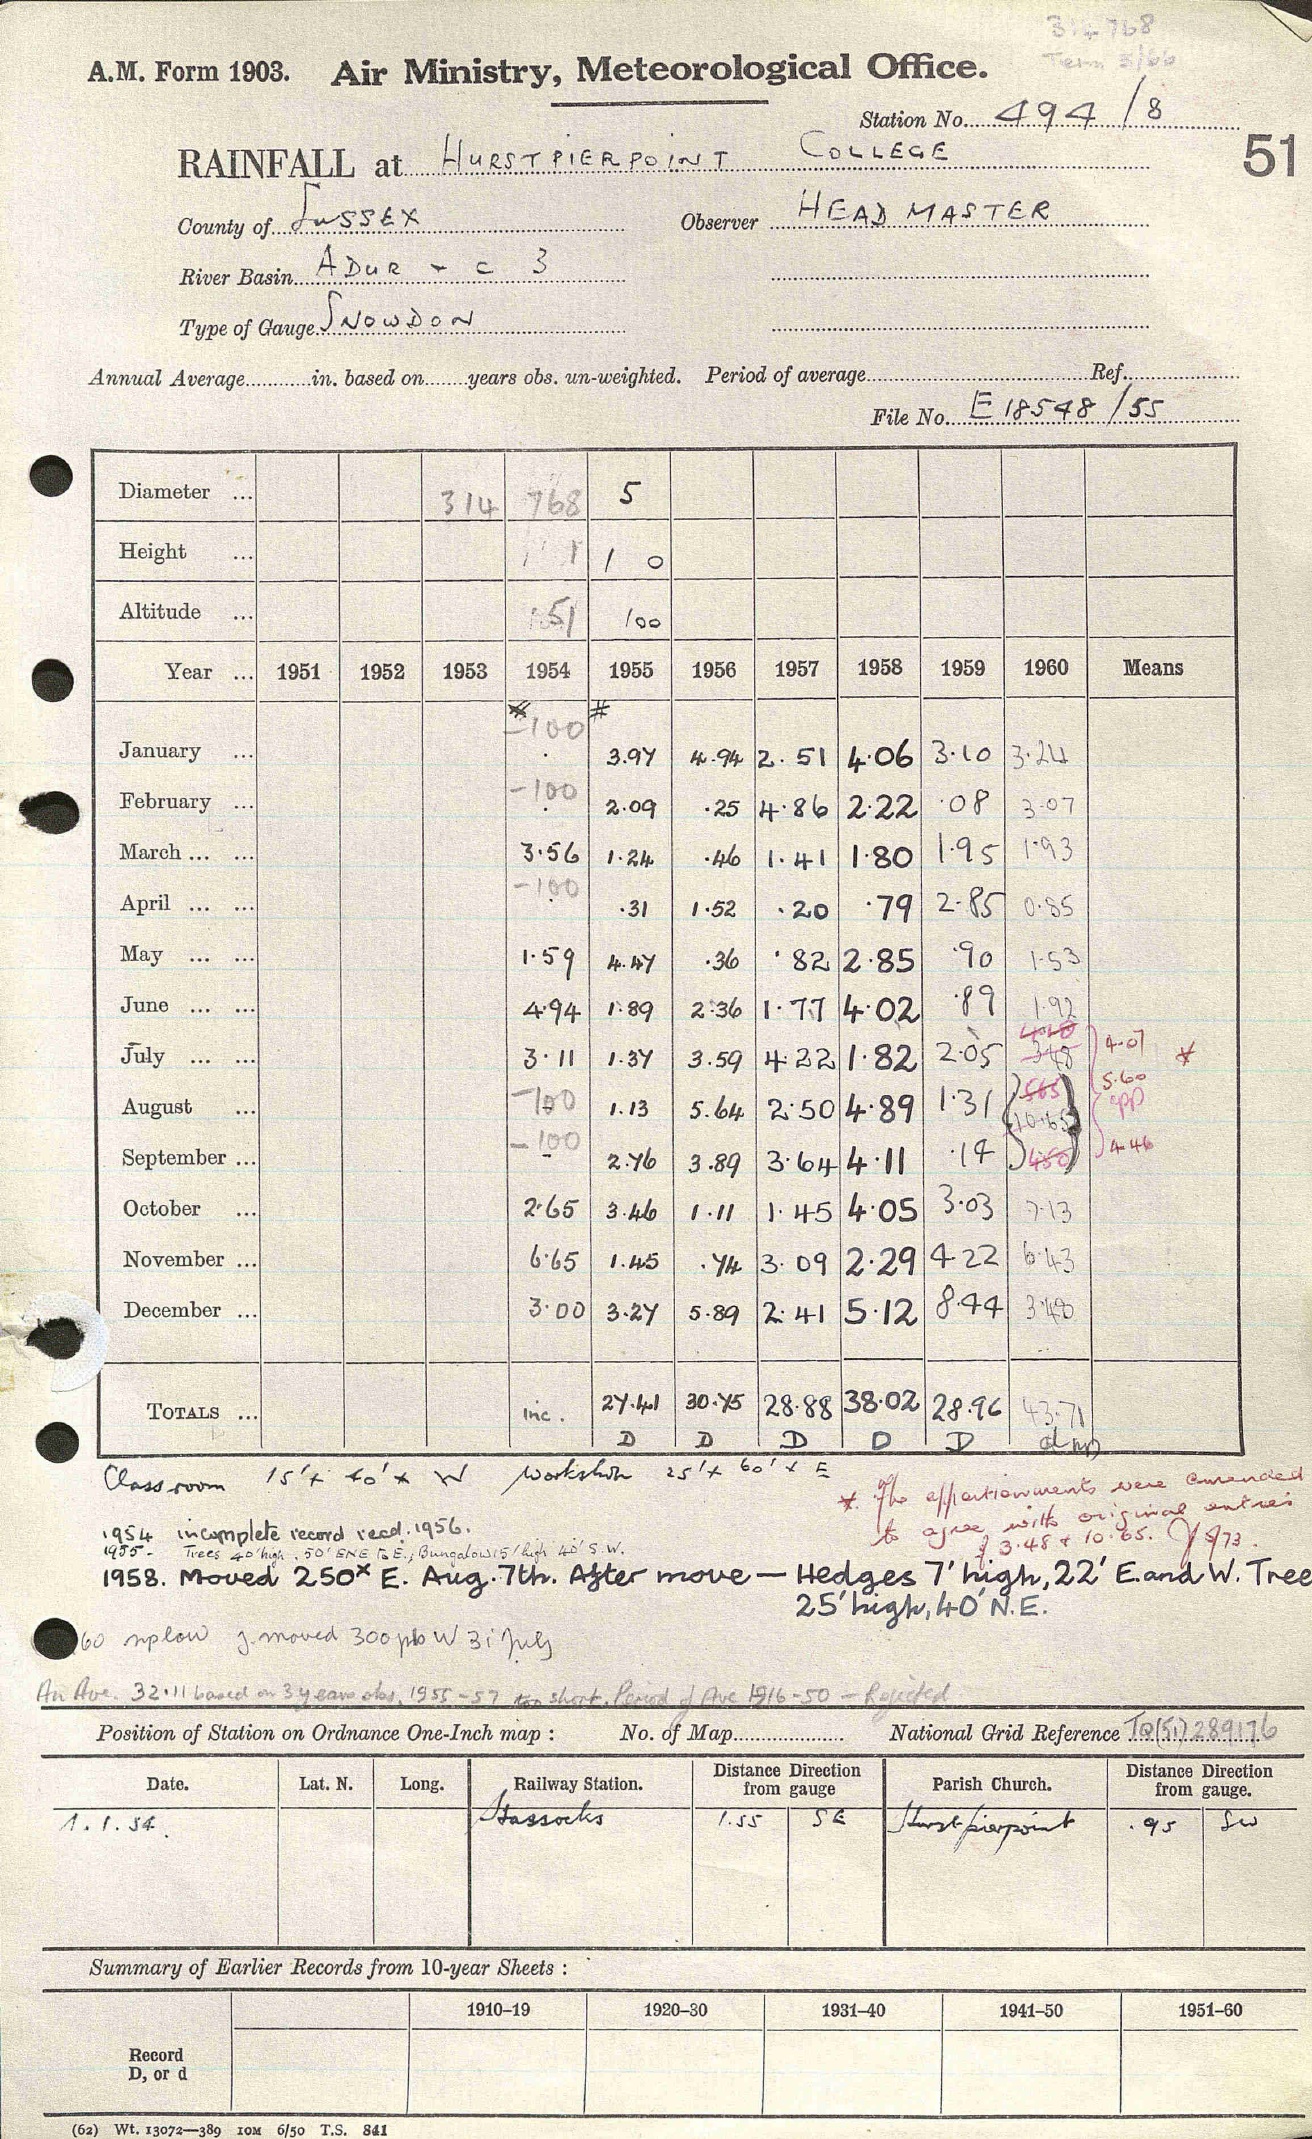 314768
Term 5/66
A.M. Form 1903. Air Ministry, Meteorological Office.
Station No. 494/8
51
RAINFALL at HURSTPIERPOINT COLLEGE
County of SUSSEX Observer HEAD MASTER
River Basin ADUR - C 3
Type of Gauge SNOWDON
Annual Average in. based on years obs. un-weighted. Period of average Ref.
File No. E 18548/55
Diameter ... 314 768 5
Height ... 1 1 0
Altitude ... 51 100
Year ... 1951 1952 1953 1954 1955 1956 1957 1958 1959 1960 Means
* #
January ... -100 3.97 4.94 2.51 4.06 3.10 3.24
February ... -100 2.09 .25 4.86 2.22 .08 3.07
March ... ... 3.56 1.24 .46 1.41 1.80 1.95 1.93
April ... ... -100 .31 1.52 .20 .79 2.85 0.85
May ... ... 1.59 4.47 .36 .82 2.85 .90 1.53
June ... ... 4.94 1.89 2.36 1.77 4.02 .89 1.92
July ... ... 3.11 1.37 3.59 4.22 1.82 2.05 4.10 3.48 4.07 *
August ... -100 1.13 5.64 2.50 4.89 1.31 5.65 10.65 5.60 app
September ... -100 - 2.76 3.89 3.64 4.11 .14 4.50 4.46
October ... 2.65 3.46 1.11 1.45 4.05 3.03 7.13
November ... 6.65 1.45 .74 3.09 2.29 4.22 6.43
December ... 3.00 3.27 5.89 2.41 5.12 8.44 3.48
TOTALS ... inc. 27.41 30.75 28.88 38.02 28.96 43.71
D D D D D d
Classroom 15'x 40'x W Workshop 25'x 60'x E
* The apportionments were amended
to agree with original entries
of 3.48 & 10.65. 5/73.
1954 incomplete record recd. 1956.
1955- Trees 40' high. 50' ENE to E.; Bungalow 15' high 40' S.W.
1958. Moved 250x E. Aug. 7th. After move — Hedges 7' high, 22' E. and W. Tree
25' high, 40' N.E.
60 moved 300 W 31 July
An Ave. 32.11 based on 3 years obs. 1955-57 too short. Period of Ave 1916-50 - Rejected
Position of Station on Ordnance One-Inch map : No. of Map National Grid Reference TQ(51) 289176
Date. Lat. N. Long. Railway Station. Distance Direction from gauge Parish Church. Distance Direction from gauge.
1.1.54. Hassocks 1.55 SE Hurstpierpoint .95 SW
Summary of Earlier Records from 10-year Sheets :
1910-19 1920-30 1931-40 1941-50 1951-60
Record
D, or d
(62) Wt. 13072—389 10M 6/50 T.S. 841